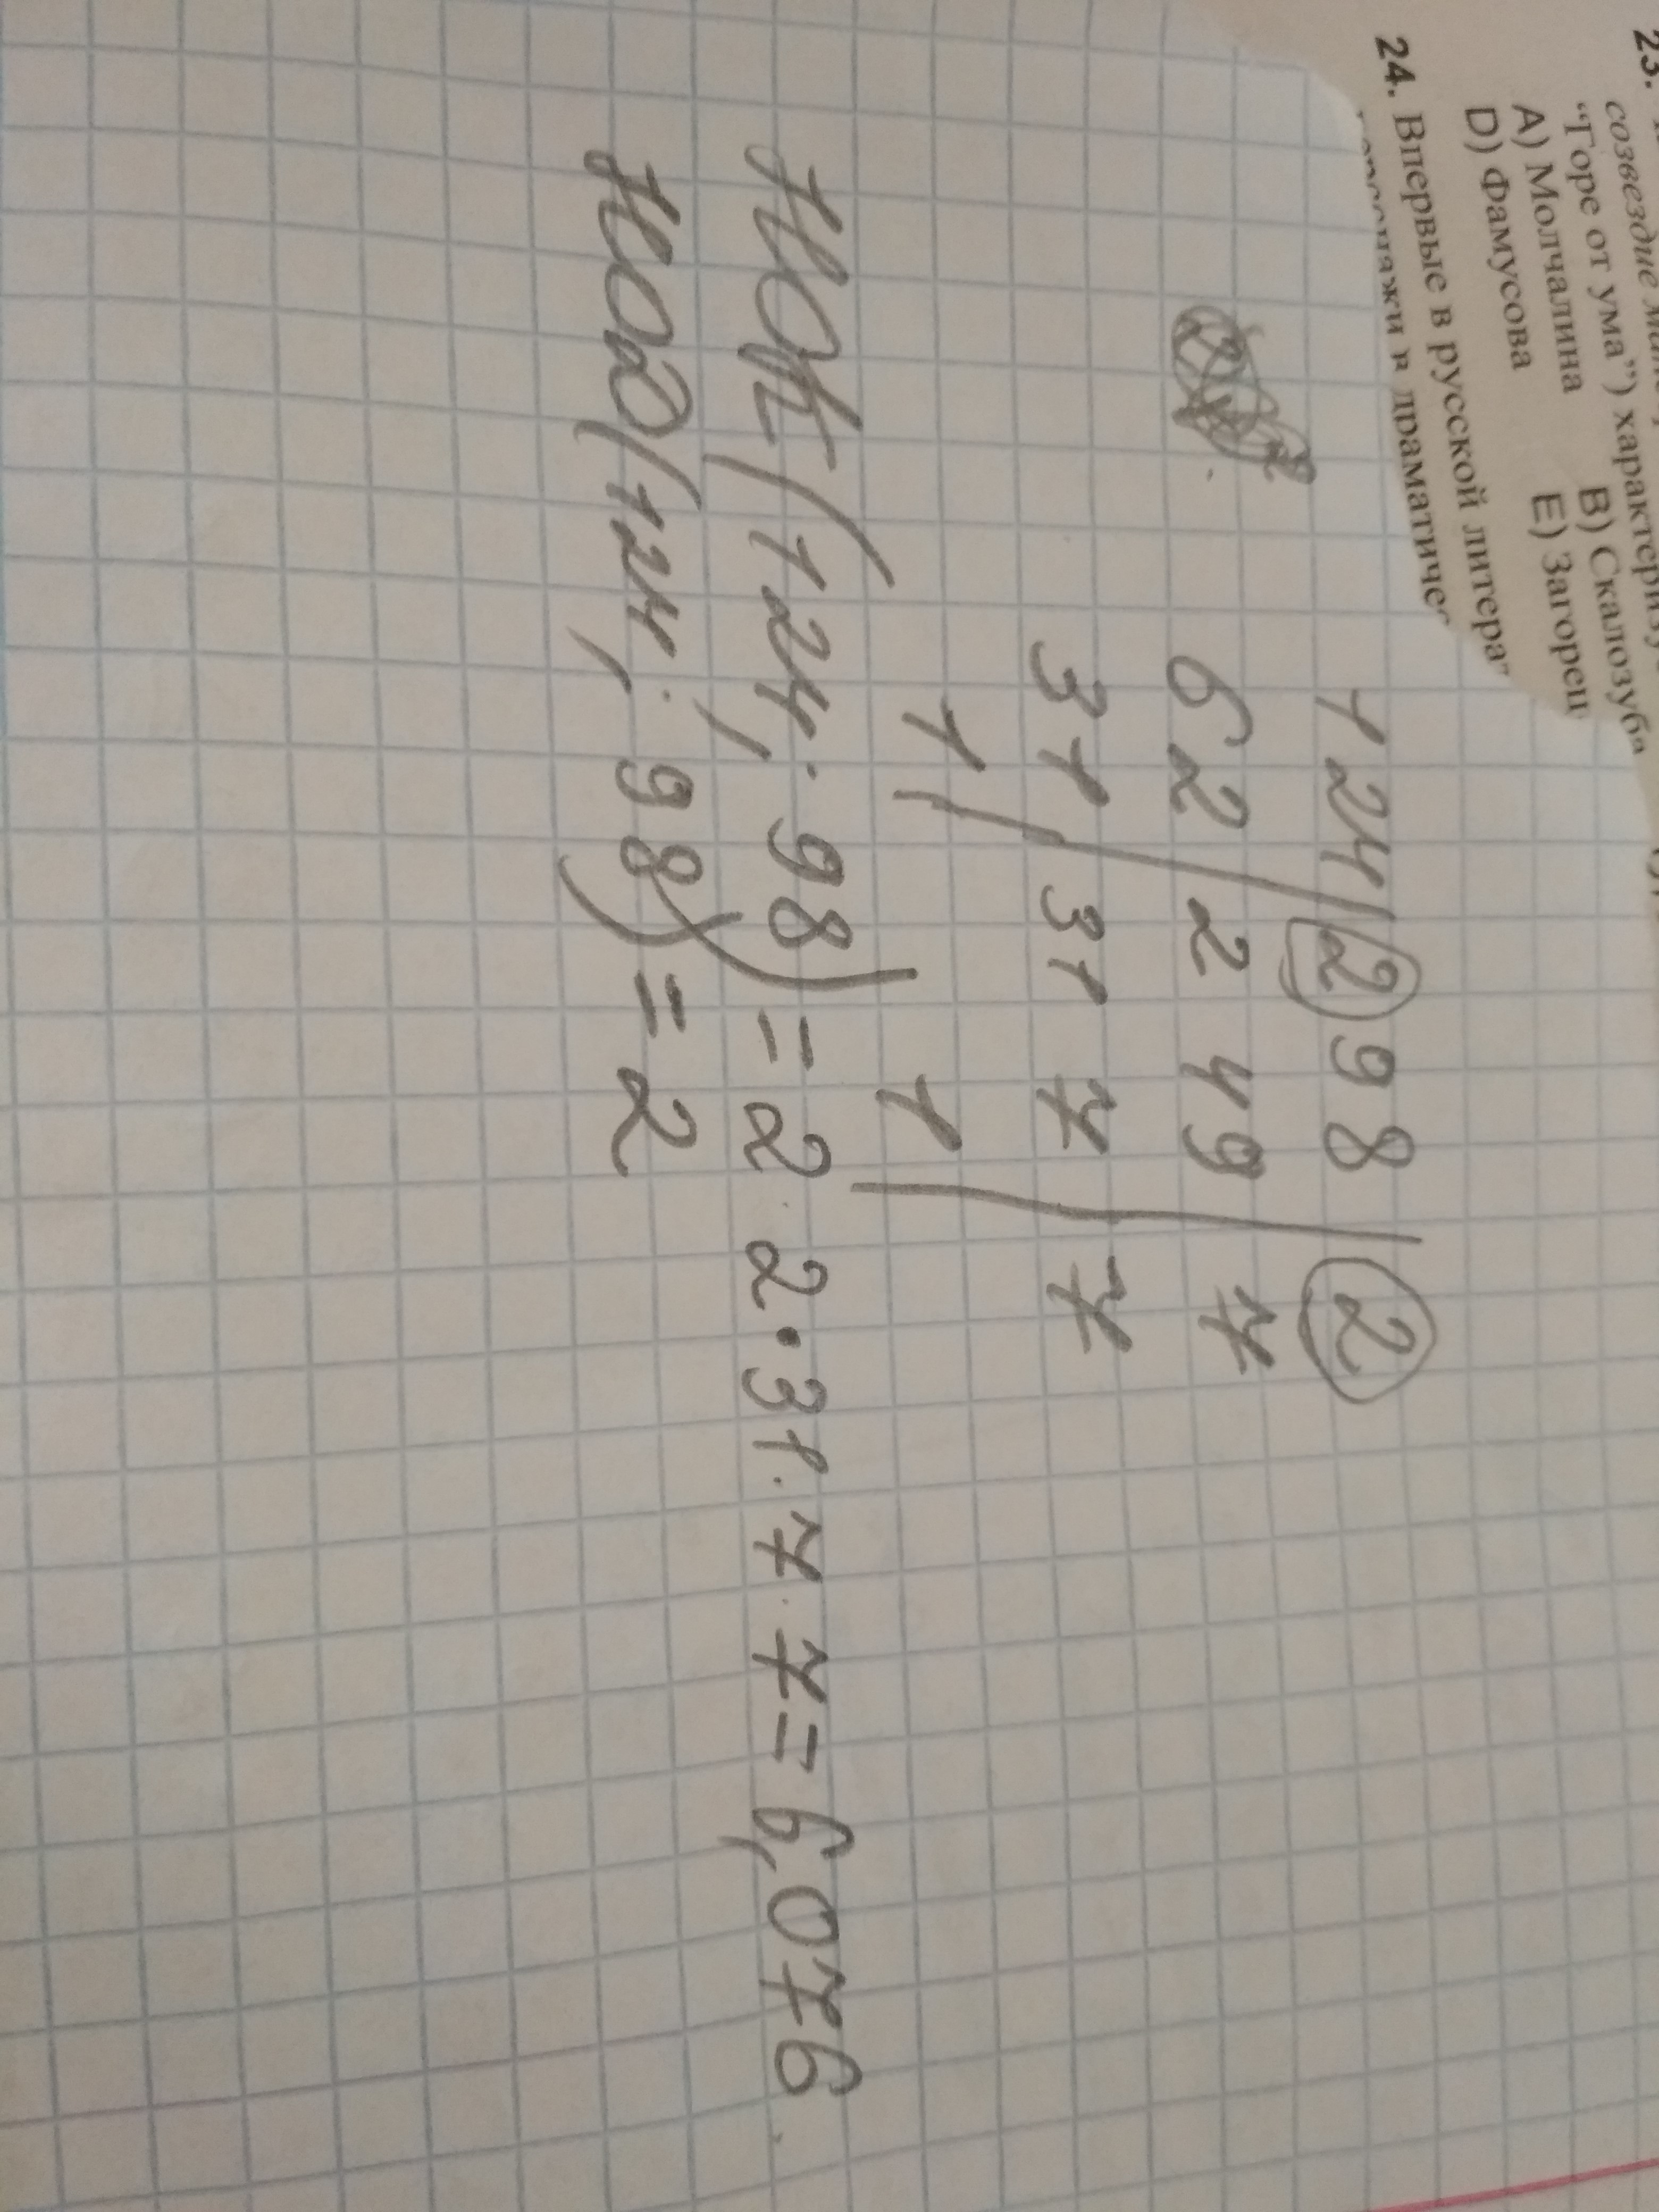 23.
созвездие
“Горе от ума”) характериз
A) Молчалина B) Скалозуба
D) Фамусова E) Загорец
24. Впервые в русской литера
в драматичес
124 2 98 2
62 2 49 7
31 31 7 7
1 1
НОК(124; 98) = 2 · 2 · 31 · 7 · 7 = 6,076
НОД(124; 98) = 2